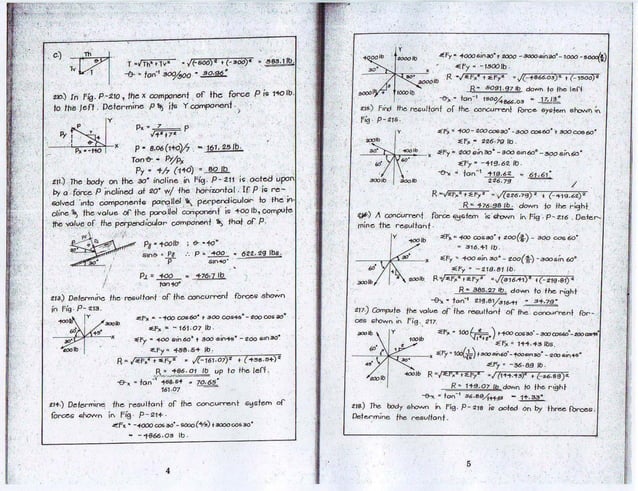 c.)
Th
Tv
T
T = √Th² + Tv² = √(-500)² + (-300)² = 583.1 lb.
-θ- = tan⁻¹ 300/500 = 30.96°
210.) In Fig. P-210, the X component of the force P is 140 lb.
to the left. Determine P & its Y component.
Px = 7/√4²+7² P
P = 8.06(140)/7 = 161.25 lb.
Tan θ = Py/Px
Py = 4/7 (140) = 80 lb
Px = -140
211.) The body on the 30° incline in Fig. P-211 is acted upon
by a force P inclined at 20° w/ the horizontal. If P is re-
solved into components parallel & perpendicular to the in-
cline &, the value of the parallel component is 400 lb, compute
the value of the perpendicular component &, that of P.
P∥ = 400 lb ; θ = 40°
sin θ = P∥/P ∴ P = 400/sin 40° = 622.29 lbs.
P⊥ = 400/tan 40° = 476.7 lb.
213.) Determine the resultant of the concurrent forces shown
in Fig. P-213.
ΣFx = -400 cos 60° + 300 cos 45° - 200 cos 30°
ΣFx = -161.07 lb.
ΣFy = 400 sin 60° + 300 sin 45° - 200 sin 30°
ΣFy = 458.54 lb.
R = √ΣFx² + ΣFy² = √(-161.07)² + (458.54)²
R = 486.01 lb up to the left.
-θ-x = tan⁻¹ 458.54/161.07 = 70.65°
214.) Determine the resultant of the concurrent system of
forces shown in Fig. P-214.
ΣFx = -4000 cos 30° - 5000 (4/5) + 3000 cos 30°
= -4866.03 lb.
4
4000 lb
2000 lb
30°
3000 lb
1000 lb
ΣFy = 4000 sin 30° + 2000 - 3000 sin 30° - 1000 - 5000(3/5)
ΣFy = -1500 lb.
R = √ΣFx² + ΣFy² = √(-4866.03)² + (-1500)²
R = 5091.97 lb down to the left
-θ-x = tan⁻¹ 1500/4866.03 = 17.13°
215.) Find the resultant of the concurrent force system shown in
Fig. P-215.
ΣFx = 400 - 200 cos 30° - 300 cos 60° + 300 cos 60°
ΣFx = 226.79 lb.
ΣFy = 200 sin 30° - 300 sin 60° - 300 sin 60°
ΣFy = -419.62 lb.
-θ-x = tan⁻¹ 419.62/226.79 = 61.61°
R = √ΣFx² + ΣFy² = √(226.79)² + (-419.62)²
R = 476.98 lb. down to the right
216.) A concurrent force system is shown in Fig. P-216. Deter-
mine the resultant.
= 316.41 lb.
ΣFy = -218.81 lb.
R = √ΣFx² + ΣFy² = √(316.41)² + (-218.81)²
R = 385.27 lb. down to the right
-θ-x = tan⁻¹ 219.81/316.41 = 34.79°
217.) Compute the value of the resultant of the concurrent for-
ces shown in Fig. 217.
ΣFx = 144.43 lbs.
ΣFy = -36.89 lb.
R = √ΣFx² + ΣFy² = √(144.43)² + (-36.89)²
R = 149.07 lb down to the right
-θ-x = tan⁻¹ 36.89/144.43 = 14.33°
218.) The body shown in Fig. P-218 is acted on by three forces.
Determine the resultant.
5